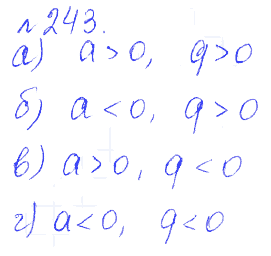 №243.
а) a > 0, q > 0
б) a < 0, q > 0
в) a > 0, q < 0
г) a < 0, q < 0